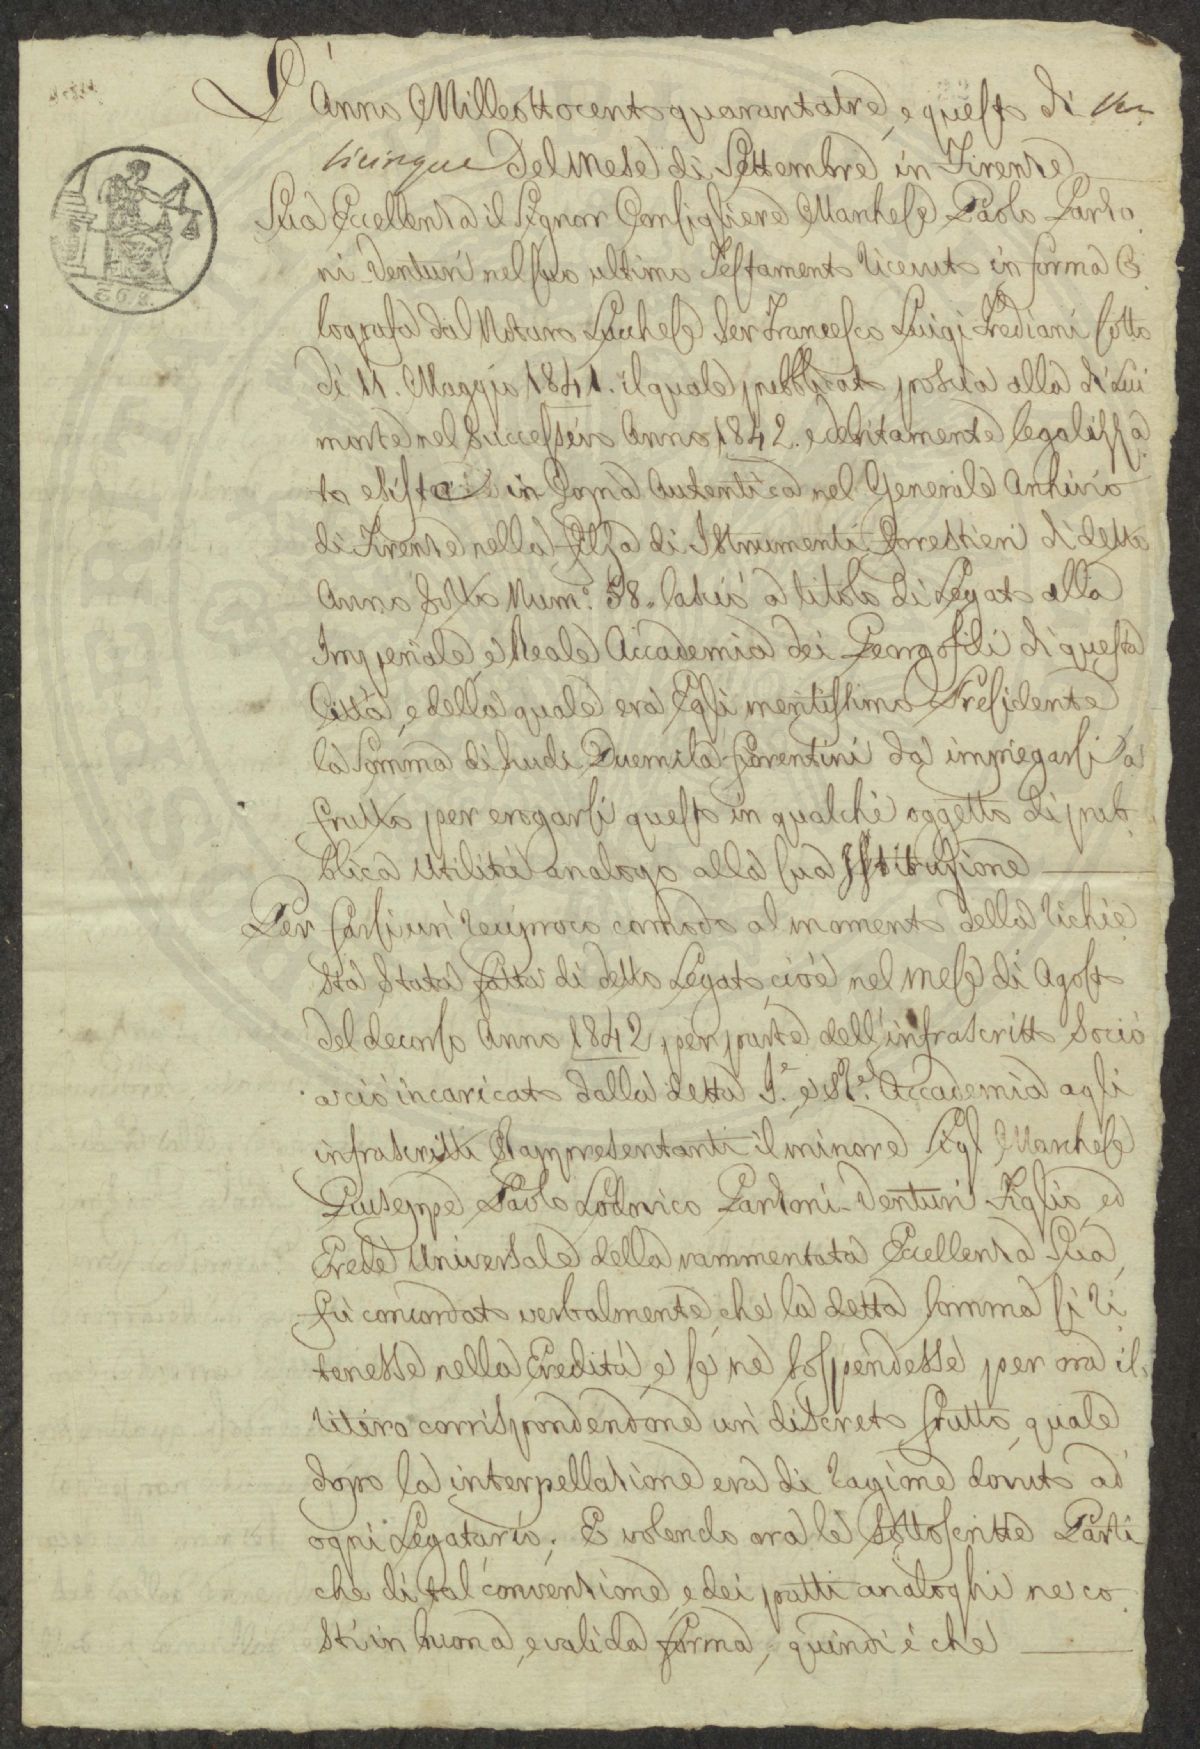 L'Anno Milleottocentoquarantatre, e questo dì Ven
ticinque del Mese di Settembre in Firenze
Sua Eccellenza il Signor Consigliere Marchese Paolo Garzo
ni-Venturi nel suo ultimo Testamento ricevuto in forma O
lografa dal Notaro Lucchese Ser Francesco Luigi Frediani sotto
dì 11. Maggio 1841. il quale pubblicato poscia alla di Lui
morte nel successivo Anno 1842. e debitamente legalizza
to esiste in Copia Autentica nel Generale Archivio
di Firenze nella Filza di Istrumenti Forestieri di detto
Anno sotto Num.o 58. lasciò a titolo di Legato alla
Imperiale e Reale Accademia dei Georgofili di questa
Città, e della quale era Egli meritissimo Presidente
la Somma di Scudi Duemila fiorentini da impiegarsi a
frutto per erogarsi questo in qualche oggetto di pub
blica utilità analogo alla sua Istituzione
Per farsi un reciproco comodo al momento della richie
sta stata fatta di detto Legato, cioè nel mese di Agosto
del decorso Anno 1842, per parte dell'infrascritto Socio
a ciò incaricato dalla detta I.e e R.e Accademia agli
infrascritti Rappresentanti il minore Sig.r Marchese
Giuseppe Paolo Lodovico Garzoni-Venturi Figlio, ed
Erede Universale della rammentata Eccellenza Sua,
fu concordato verbalmente, che la detta somma si ri
tenesse nella Eredità e se ne sospendesse per ora il
ritiro corrispondendone un discreto frutto, quale
dopo la interpellazione era di ragione dovuto ad
ogni Legatario. E volendo ora le Sottoscritte Parti
che di tal convenzione, e dei patti analoghi ne co
sti in buona, e valida forma, quindi è che